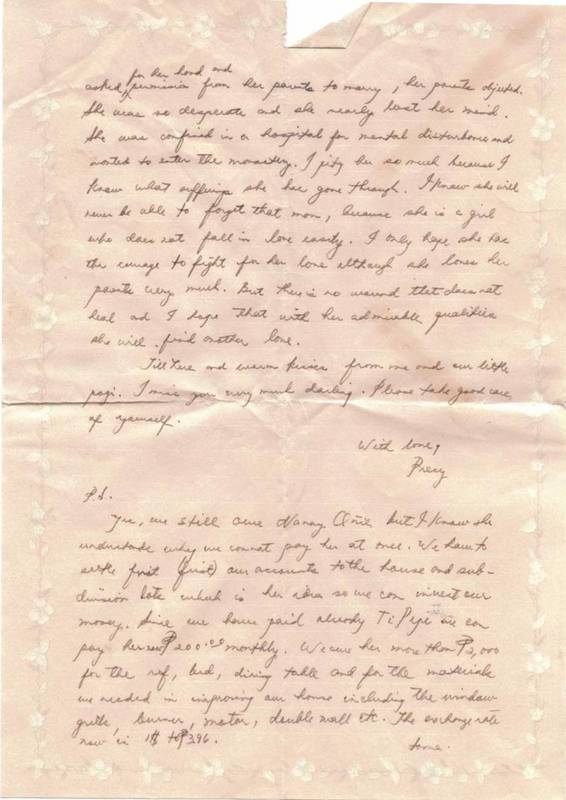 for her hand and
asked permission from her parents to marry, her parents objected.
She was so desperate and she nearly lost her mind.
She was confined in a hospital for mental disturbance and
wanted to enter the monastery. I pity her so much because I
know what sufferings she has gone through. I know she will
never be able to forget that man, because she is a girl
who does not fall in love easily. I only hope she has
the courage to fight for her love although she loves her
parents very much. But there is no wound that does not
heal and I hope that with her admirable qualities
she will find another love.
Till here and warm kisses from me and our little
pogi. I miss you very much darling. Please take good care
of yourself.
With love,
Presy
P.S.
Yes, we still owe Nanay but I know she
understands why we cannot pay her at once. We have to
settle first (first) our accounts to the house and sub-
division lots which is her idea so we can invest our
money. Since we have paid already Ti Pepe we can
pay her now ₱200.00 monthly. We owe her more than ₱2,000
for the ref, bed, dining table and for the materials
we needed in improving our home including the window
grills, burner, motor, double wall etc. The exchange rate
now is 1$ to ₱3.96.